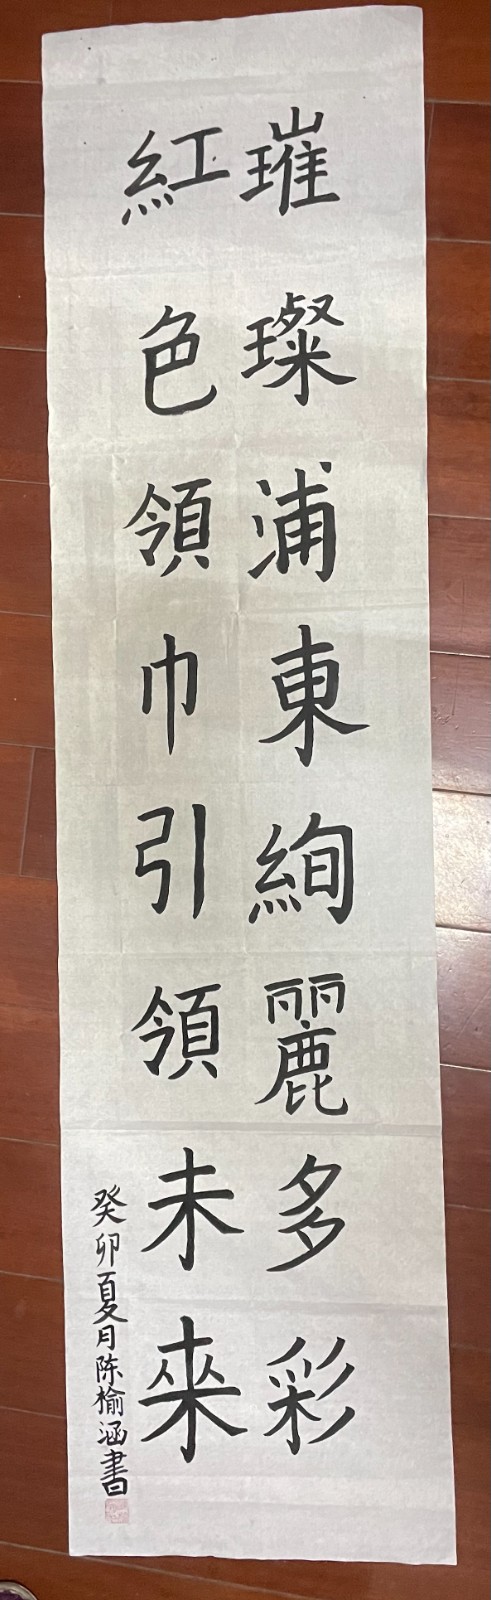 璀璨浦東絢麗多彩
紅色領巾引領未來
癸卯夏月陈榆涵書